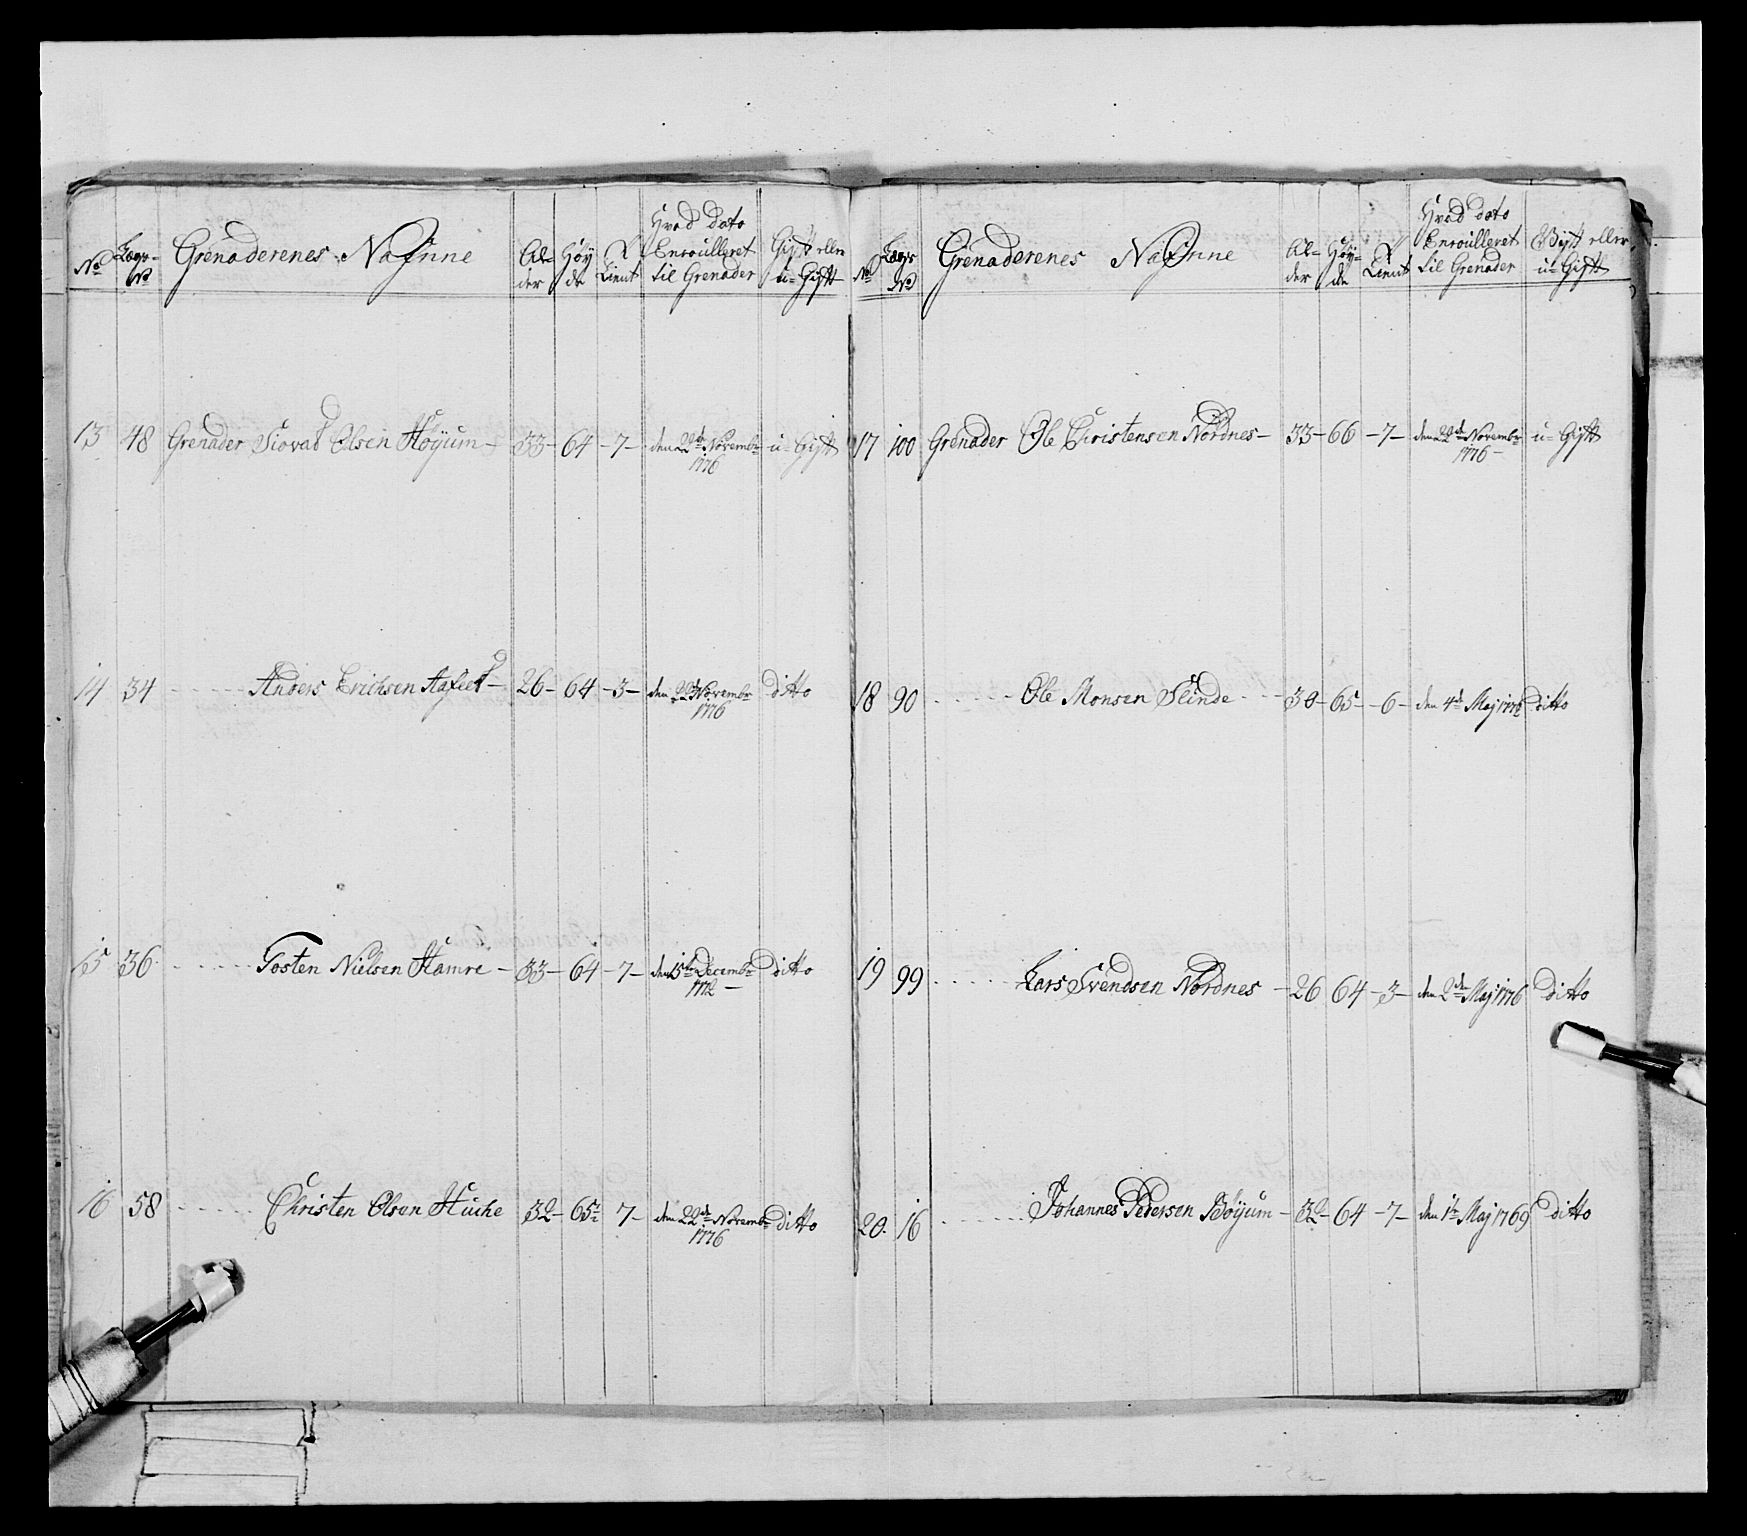 No Lægs No Grenaderenes Nafnne Al= der Høy de Tient Hvad dato Enroulleret til Grenader Gift eller u=Gift
13 48 Grenader Siovat Olsen Høyum - 33 - 64 - 7 - den 22de Novembr 1776 u=Gift
14 34 Anders Erichsen Aafeet - 26 - 64 - 3 - den 22de Novembr 1776 ditto
15 36 Tosten Nielsen Hamre - 33 - 64 - 7 - den 15de Decembr 1772 - ditto
16 58 Christen Olsen Husche 32 - 65 7 - den 22de Novembr 1776 ditto
No Lægs No Grenaderenes Nafnne Al= der Høy= de Tient Hvad dato Enroulleret til Grenader Gift eller u=Gift
17 100 Grenader Ole Christensen Nordnes - 33 - 66 - 7 - den 22de Novembr 1776 - u=Gift
18 90 Ole Monsen Slinde 30 - 65 - 6 - den 4de Maj ditto
19 99 Lars Svendsen Nordnes - 26 64 - 3 - den 2den Maj 1776 ditto
20. 16 Johannes Pedersen Bøyum - 32 - 64 - 7 - den 1te Maj 1769 ditto